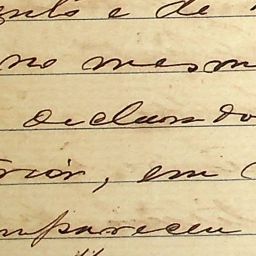 e de
no mesm
declara do
rior, em
mpareceu